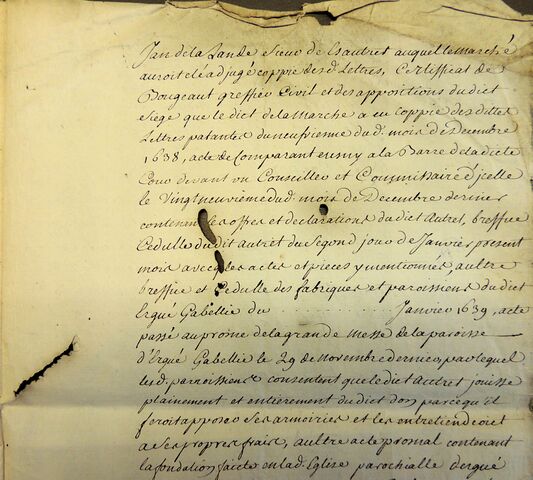 Jan de la Lande Sieur de Trautret auquel le marché
auroit eté adjugé coppie desd. Lettres, Certifficat de
Bougeaut greffier Civil et des appositions dudict
Siége que le dict de la Marche a eu coppie des dittes
Lettres patantes du neufvienme dud. mois de Decembre
1638, acte de Comparant en suy a la Barre de la dicte
Cour devant un Conseiller et Commissaire d'jcelle
le Vingt neuviéme dud. mois de Decembre dernier
contenant les offres et declarations du dict Autret, breffue
Cedulle dudit autret du Second jour de Janvier present
mois avec les actes et pieces y mentionnés aultre
breffue et Cedulle des fabriques et paroissiens du dict
Ergué Gabellic du . . . . . . . . . . Janvier 1639, acte
passé au prosne de la grande messe de la paroisse —
d'Ergué Gabellic le 29 de Novembre dernier, par lequel
les d. paroissiens consentent que le dict Autret jouisse
plainement et entiérement du dict don parce qu'il
feroit apposer Ses armoiries et les entretiendroit
a Ses propres frais, aultre acte prosnal contenant
la fondation faicte en lad. Eglise parochialle d'ergué